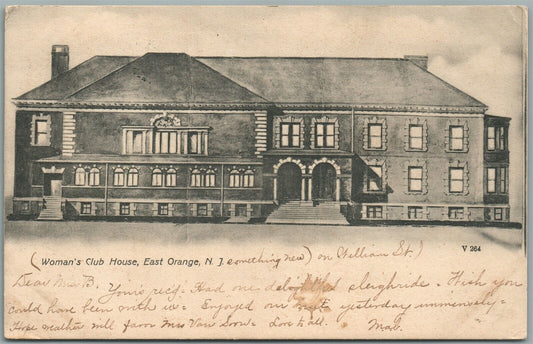 (Woman's Club House, East Orange, N. J. something new) on William St.)
V 264
Dear Mrs B. Yours rec'd. Had one sleighride - Wish you
could have been with us - Enjoyed yesterday immensely -
Hope weather will favor Mrs Van - Love to all.
Mab.